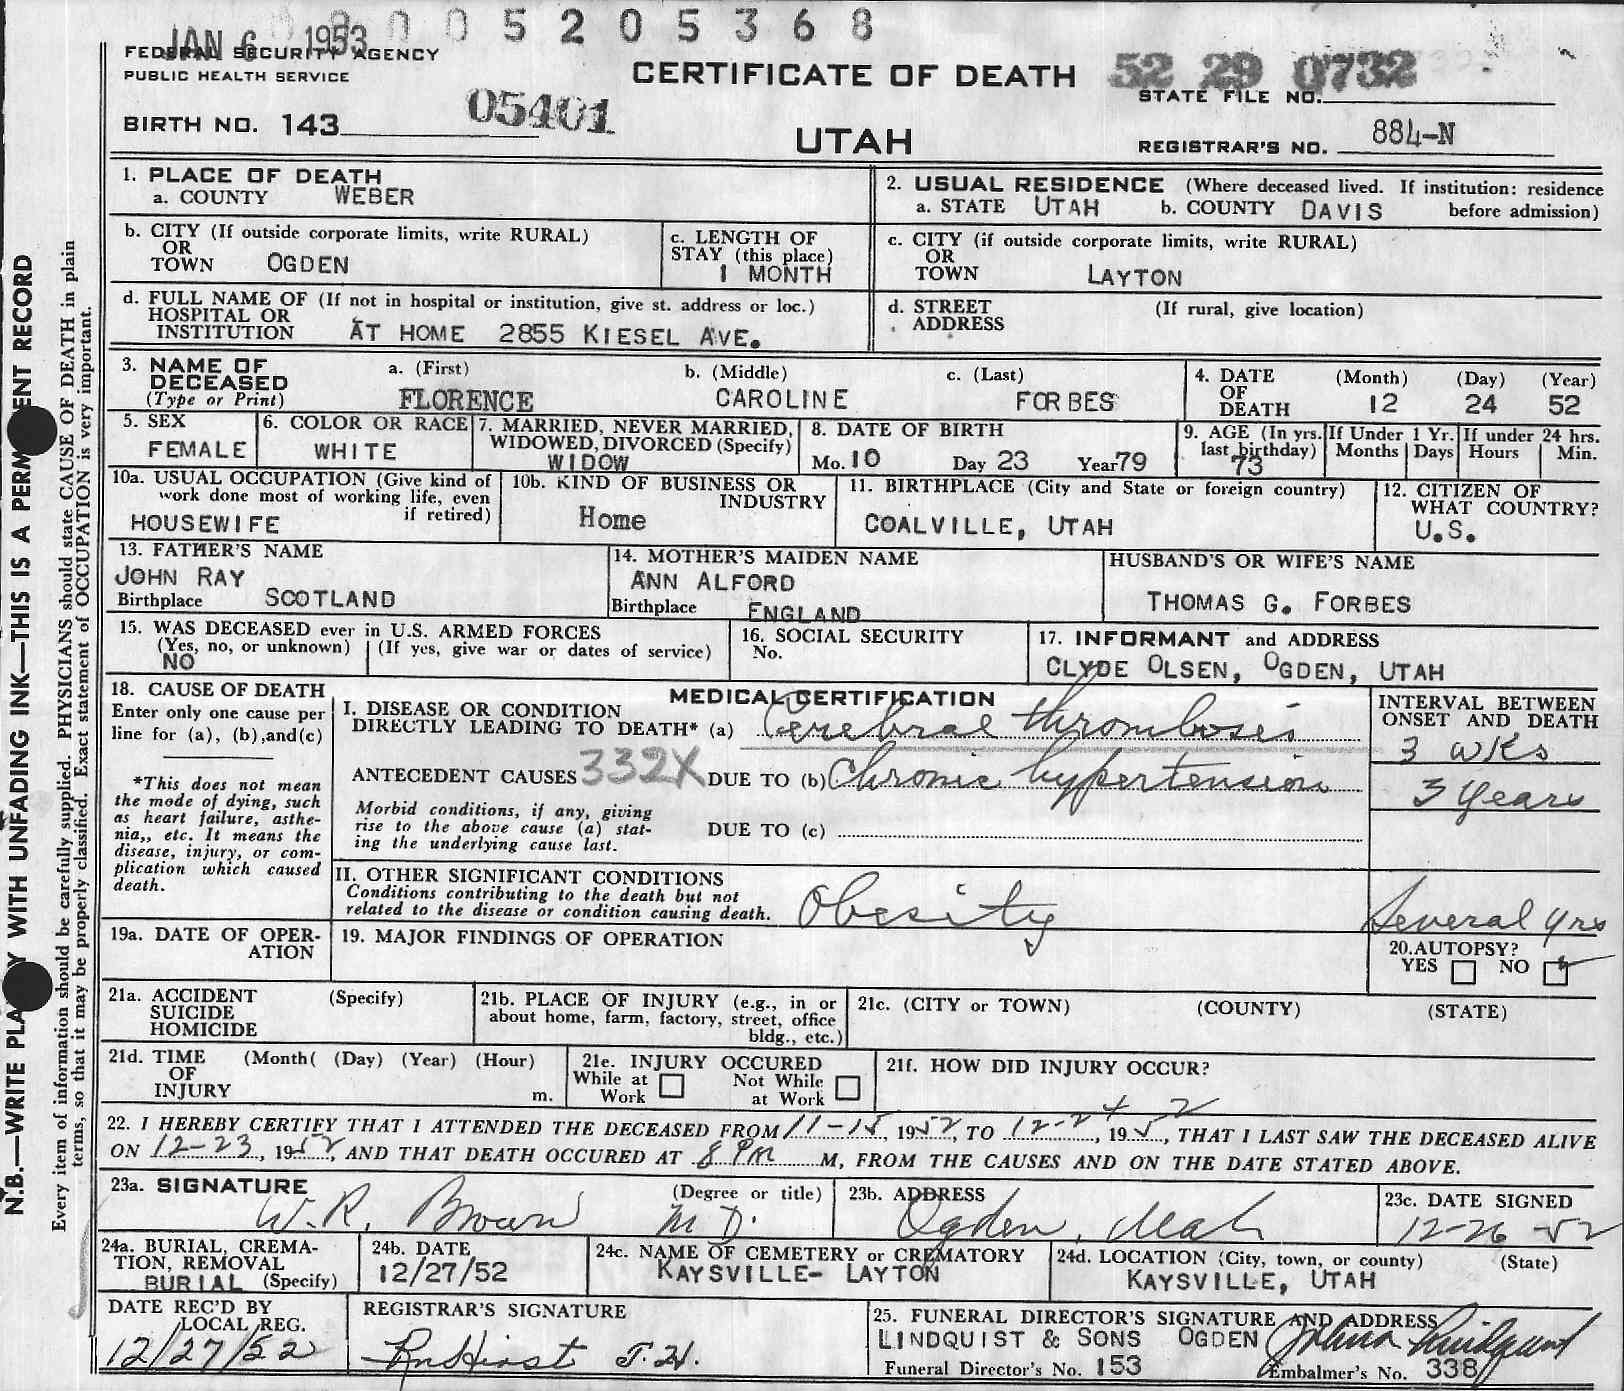 8 0 0 5 2 0 5 3 6 8
JAN 6 1953
FEDERAL SECURITY AGENCY
PUBLIC HEALTH SERVICE
CERTIFICATE OF DEATH
52 29 0732
STATE FILE NO.
BIRTH NO. 143
05401
UTAH
REGISTRAR'S NO. 884-N
1. PLACE OF DEATH
a. COUNTY WEBER
2. USUAL RESIDENCE (Where deceased lived. If institution: residence
a. STATE UTAH b. COUNTY DAVIS before admission)
b. CITY (If outside corporate limits, write RURAL)
OR
TOWN OGDEN
c. LENGTH OF
STAY (this place)
1 MONTH
c. CITY (if outside corporate limits, write RURAL)
OR
TOWN LAYTON
d. FULL NAME OF (If not in hospital or institution, give st. address or loc.)
HOSPITAL OR
INSTITUTION AT HOME 2855 KIESEL AVE.
d. STREET (If rural, give location)
ADDRESS
3. NAME OF a. (First) b. (Middle) c. (Last)
DECEASED
(Type or Print) FLORENCE CAROLINE FORBES
4. DATE (Month) (Day) (Year)
OF
DEATH 12 24 52
5. SEX
FEMALE
6. COLOR OR RACE
WHITE
7. MARRIED, NEVER MARRIED,
WIDOWED, DIVORCED (Specify)
WIDOW
8. DATE OF BIRTH
Mo. 10 Day 23 Year 79
9. AGE (In yrs.
last birthday)
73
If Under 1 Yr.
Months Days
If under 24 hrs.
Hours Min.
10a. USUAL OCCUPATION (Give kind of
work done most of working life, even
if retired)
HOUSEWIFE
10b. KIND OF BUSINESS OR
INDUSTRY
Home
11. BIRTHPLACE (City and State or foreign country)
COALVILLE, UTAH
12. CITIZEN OF
WHAT COUNTRY?
U.S.
13. FATHER'S NAME
JOHN RAY
Birthplace SCOTLAND
14. MOTHER'S MAIDEN NAME
ANN ALFORD
Birthplace ENGLAND
HUSBAND'S OR WIFE'S NAME
THOMAS G. FORBES
15. WAS DECEASED ever in U.S. ARMED FORCES
(Yes, no, or unknown) (If yes, give war or dates of service)
NO
16. SOCIAL SECURITY
No.
17. INFORMANT and ADDRESS
CLYDE OLSEN, OGDEN, UTAH
18. CAUSE OF DEATH
Enter only one cause per
line for (a), (b),and(c)
*This does not mean
the mode of dying, such
as heart failure, asthe-
nia,, etc. It means the
disease, injury, or com-
plication which caused
death.
MEDICAL CERTIFICATION
I. DISEASE OR CONDITION
DIRECTLY LEADING TO DEATH* (a) Cerebral thrombosis
ANTECEDENT CAUSES 332X DUE TO (b) Chronic hypertension
Morbid conditions, if any, giving
rise to the above cause (a) stat-
ing the underlying cause last.
DUE TO (c)
INTERVAL BETWEEN
ONSET AND DEATH
3 wks
3 years
II. OTHER SIGNIFICANT CONDITIONS
Conditions contributing to the death but not
related to the disease or condition causing death. Obesity
Several yrs
19a. DATE OF OPER-
ATION
19. MAJOR FINDINGS OF OPERATION
20. AUTOPSY?
YES NO
21a. ACCIDENT (Specify)
SUICIDE
HOMICIDE
21b. PLACE OF INJURY (e.g., in or
about home, farm, factory, street, office
bldg., etc.)
21c. (CITY or TOWN) (COUNTY) (STATE)
21d. TIME (Month( (Day) (Year) (Hour)
OF
INJURY m.
21e. INJURY OCCURED
While at Work Not While at Work
21f. HOW DID INJURY OCCUR?
22. I HEREBY CERTIFY THAT I ATTENDED THE DECEASED FROM 11-15, 1952, TO 12-24, 1952, THAT I LAST SAW THE DECEASED ALIVE
ON 12-23, 1952, AND THAT DEATH OCCURED AT 8 PM M, FROM THE CAUSES AND ON THE DATE STATED ABOVE.
23a. SIGNATURE (Degree or title)
W.R. Brown M D.
23b. ADDRESS
Ogden, Utah
23c. DATE SIGNED
12-26-52
24a. BURIAL, CREMA-
TION, REMOVAL
BURIAL (Specify)
24b. DATE
12/27/52
24c. NAME OF CEMETERY or CREMATORY
KAYSVILLE- LAYTON
24d. LOCATION (City, town, or county) (State)
KAYSVILLE, UTAH
DATE REC'D BY
LOCAL REG.
12/27/52
REGISTRAR'S SIGNATURE
25. FUNERAL DIRECTOR'S SIGNATURE AND ADDRESS
LINDQUIST & SONS OGDEN
Funeral Director's No. 153 Embalmer's No. 338
N.B.—WRITE PLA Y WITH UNFADING INK—THIS IS A PERM ENT RECORD
Every item of information should be carefully supplied. PHYSICIANS should state CAUSE OF DEATH in plain
terms, so that it may be properly classified. Exact statement of OCCUPATION is very important.